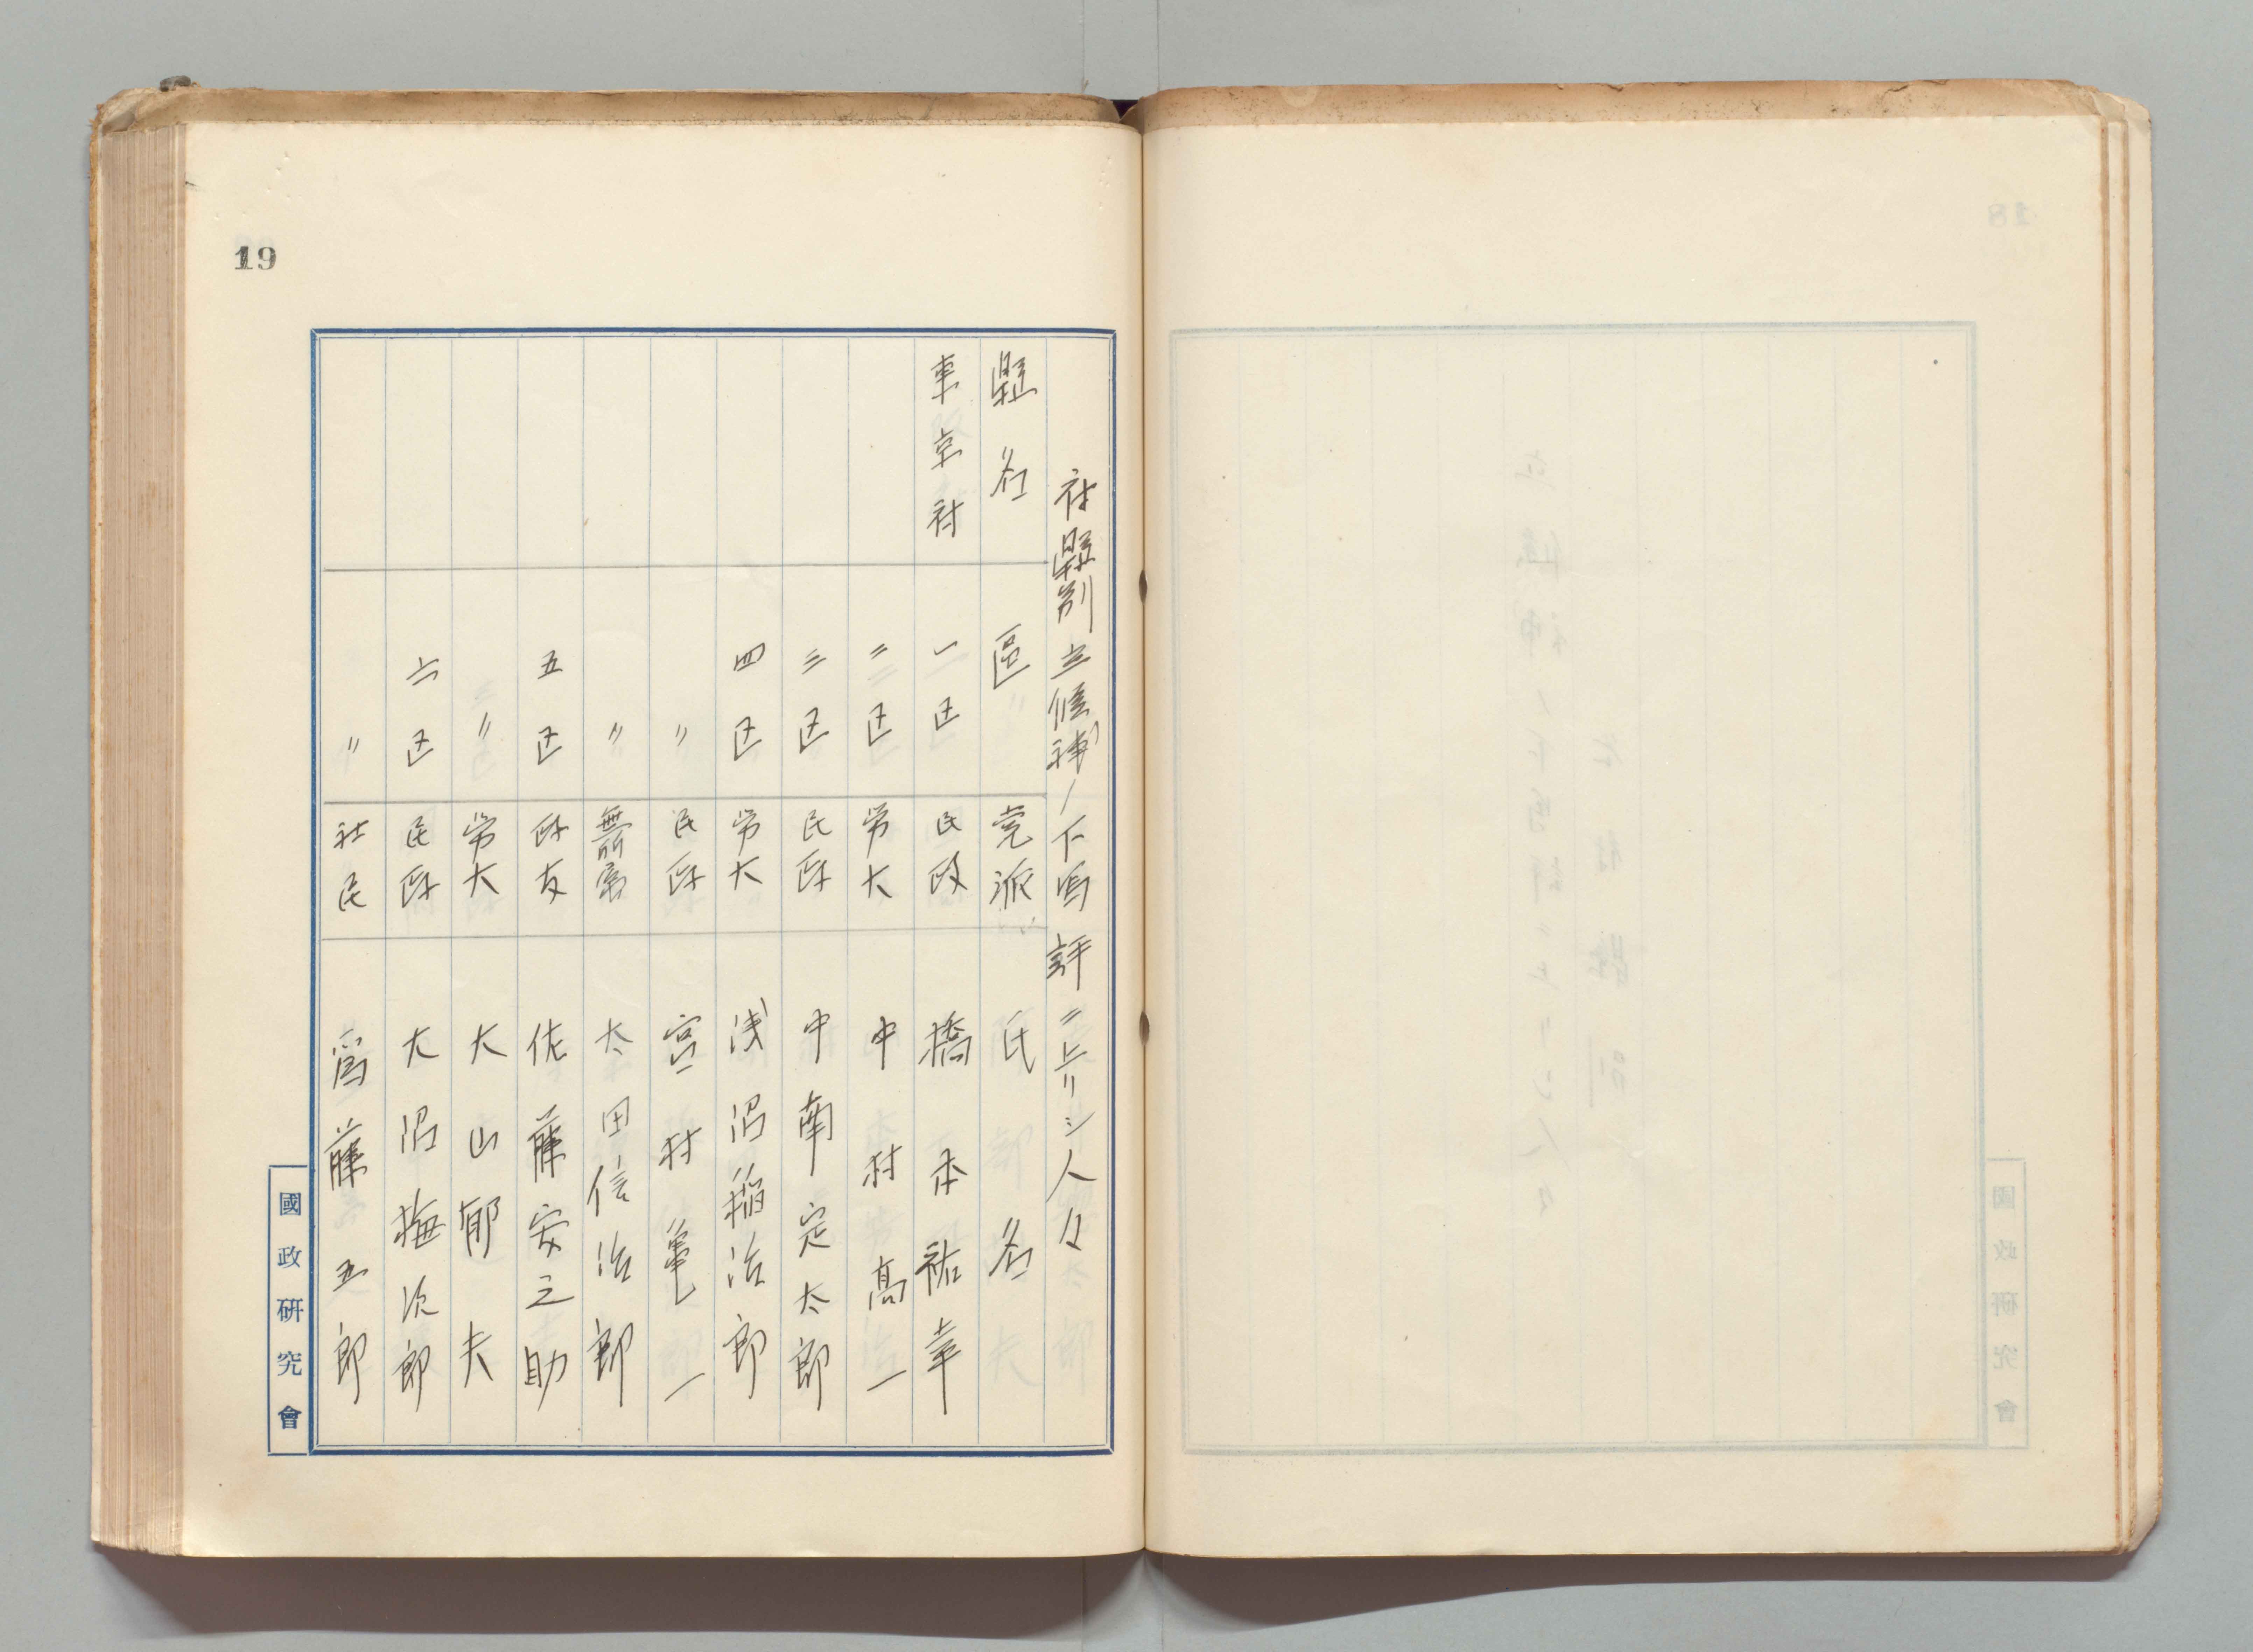 19
府縣別立候補ノ下馬評ニ上リシ人々
縣名 區 党派 氏名
東京府 一区 民政 橋本祐幸
二区 労大 中村高一
三区 民政 中南定太郎
四区 労大 浅沼稲治郎
〃 民政 宮村亀一
〃 無所属 太田信治郎
五区 政友 佐藤安之助
〃 労大 大山郁夫
六区 民政 大沼梅次郎
〃 社民 爲藤五郎
國政研究會